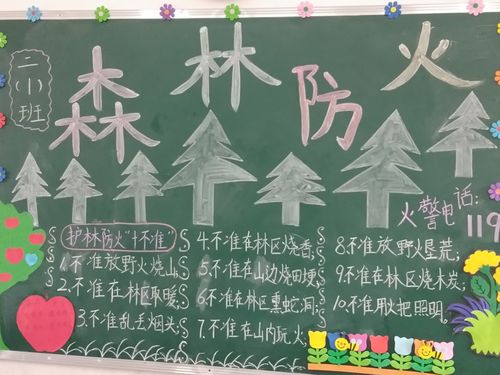 二(1)班
森林防火
火警电话:
119
护林防火"十不准"
1.不准放野火烧山;
2.不准在林区取暖;
3.不准乱丢烟头;
4.不准在林区烧香;
5.不准在山边烧田埂;
6.不准在林区熏蛇洞;
7.不准在山内玩火;
8.不准放野火垦荒;
9.不准在林区烧木炭;
10.不准用火把照明。